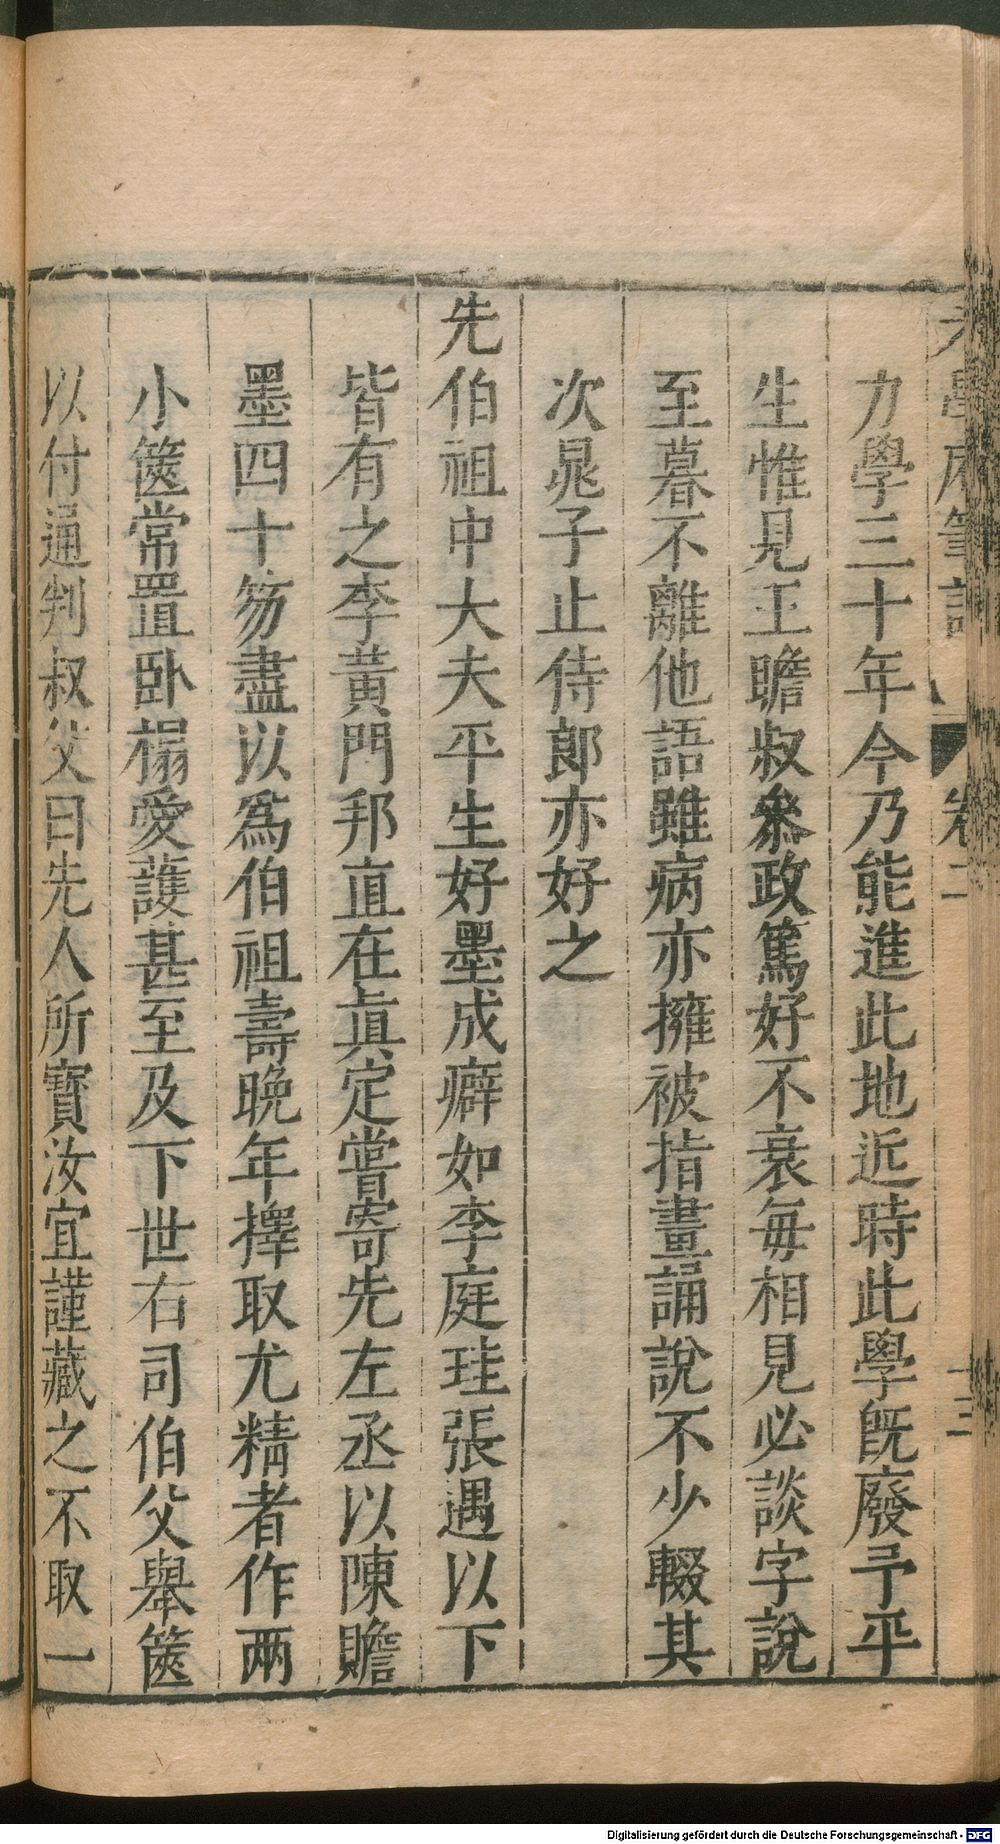 力學三十年今乃能進此地近時此學旣廢予平
生惟見王瞻叔叅政篤好不衰每相見必談字說
至暮不離他語雖病亦擁被指畫誦說不少輟其
次晁子止侍郞亦好之
先伯祖中大夫平生好墨成癖如李庭珪張遇以下
皆有之李黃門邦直在眞定嘗寄先左丞以陳贍
墨四十笏盡以爲伯祖壽晚年擇取尤精者作兩
小篋常置卧榻愛護甚至及下世右司伯父舉篋
以付通判叔父曰先人所寶汝宜謹藏之不取一
卷二
十三
Digitalisierung gefördert durch die Deutsche Forschungsgemeinschaft - DFG